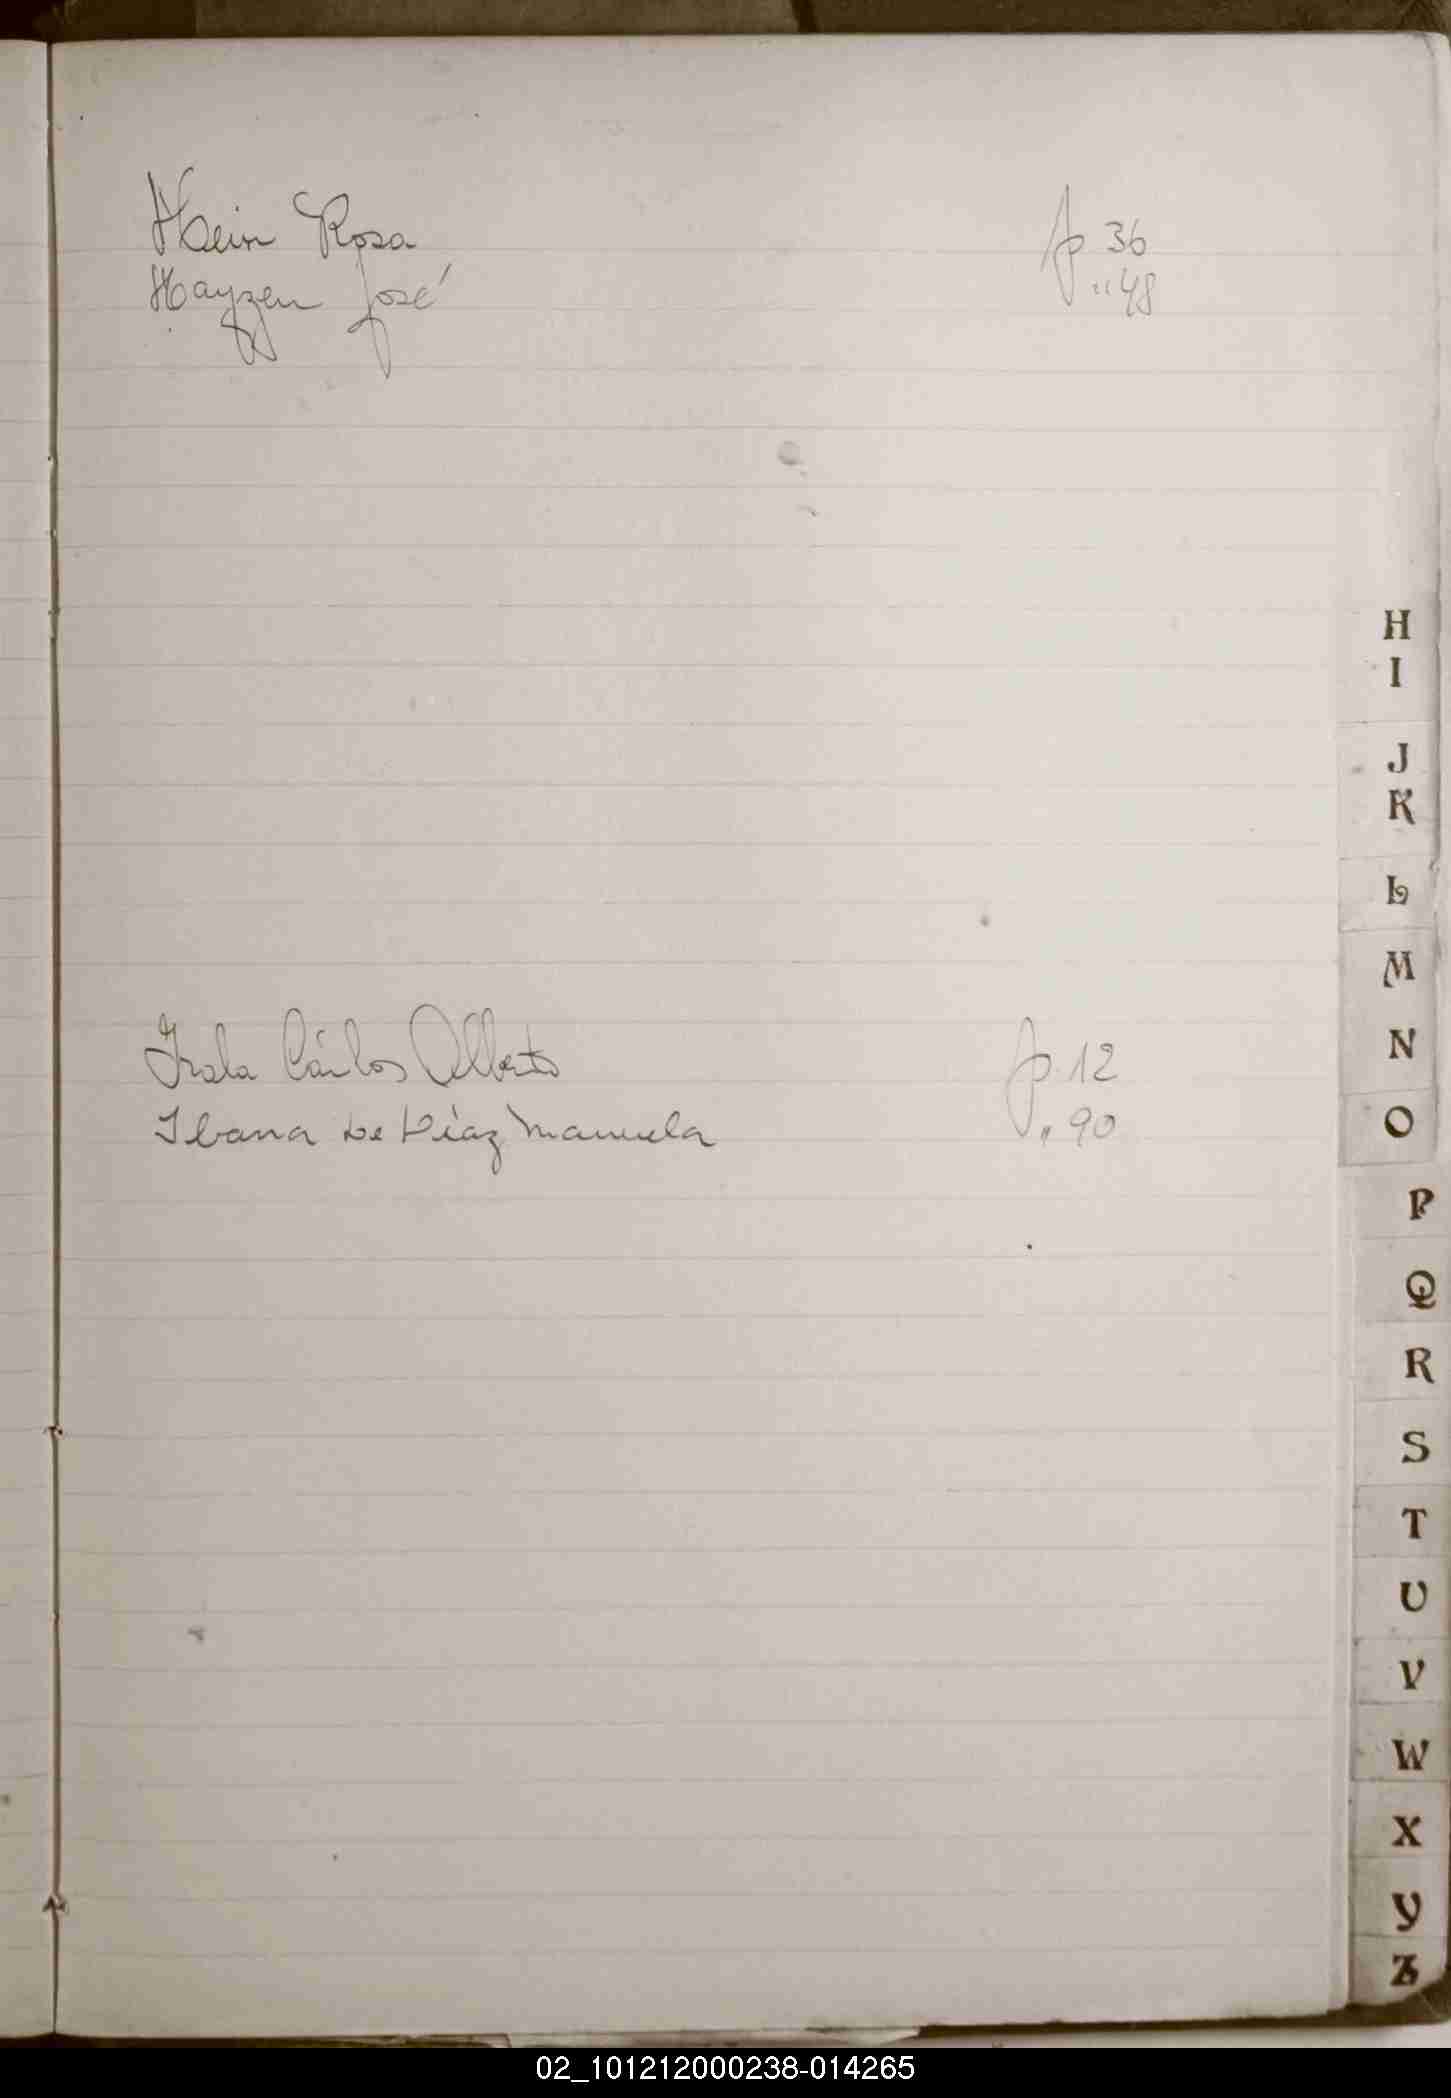 Hein Rosa fp 36
Hayzen José " 48
Irala Cárlos Alberto fp. 12
Ibana de Díaz Manuela " 90
H
I
J
K
L
M
N
O
P
Q
R
S
T
U
V
W
X
Y
Z
02_101212000238-014265